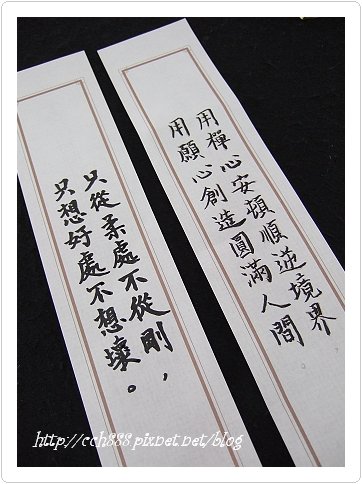 用禪心安頓順逆境界
用願心創造圓滿人間
只從柔處不從剛，
只想好處不想壞。
http://cch888.pixnet.net/blog